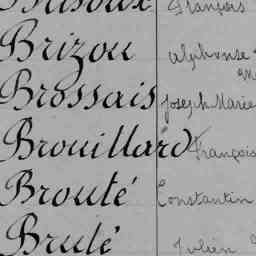 François
Brizou Alphonse
Brossais Joseph Marie
Brouillard François
Brouté Constantin
Brulé Julien